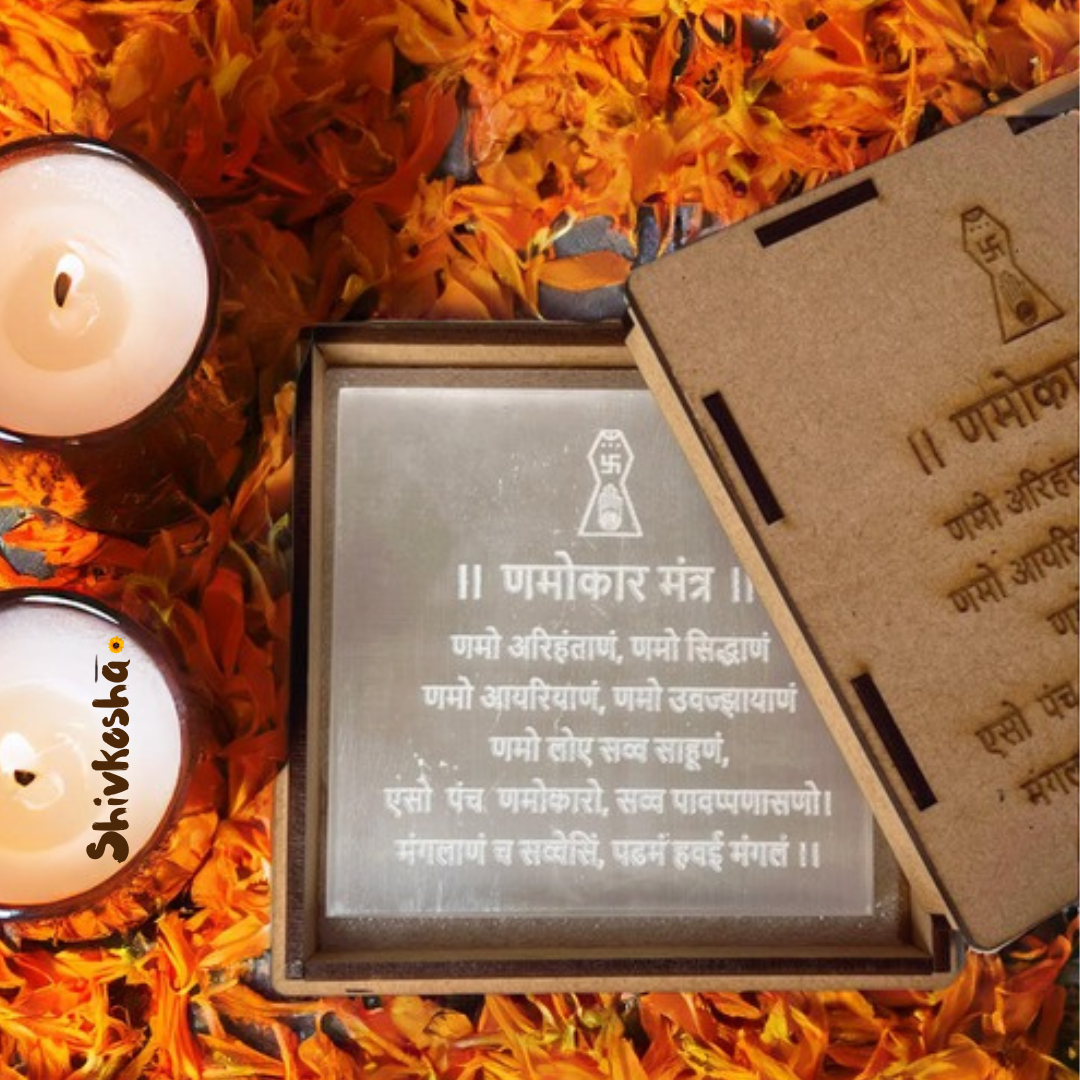 || णमोकार मंत्र ||
णमो अरिहंताणं, णमो सिद्धाणं
णमो आयरियाणं, णमो उवज्झायाणं
णमो लोए सव्व साहूणं,
एसो पंच णमोकारो, सव्व पावप्पणासणो।
मंगलाणं च सव्वेसिं, पढमं हवई मंगलं ||
|| णमोका
णमो अरिहंत
णमो आयरि
णमो
एसो पंच
मंगल
Shivkoshā